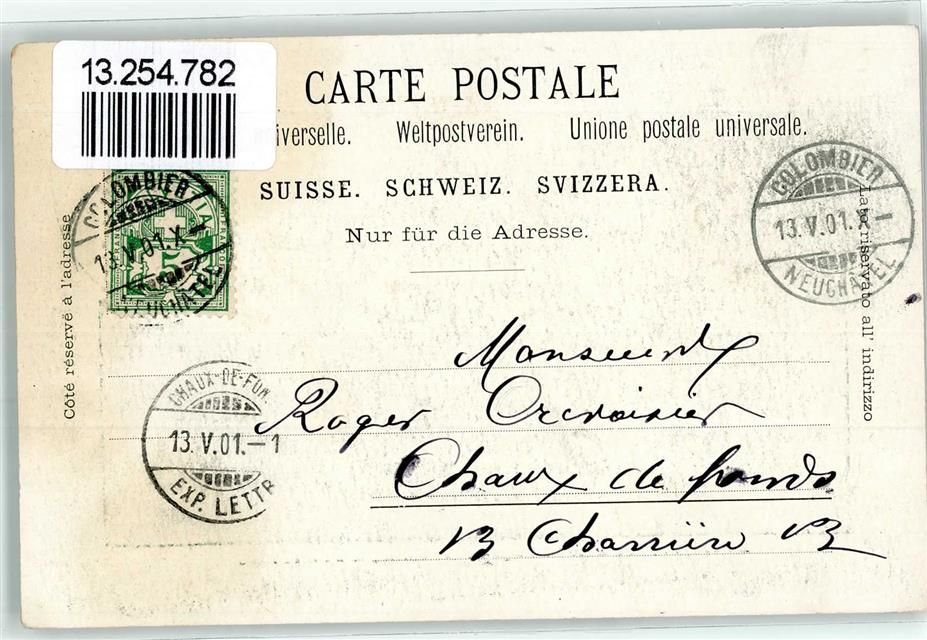 13.254.782
CARTE POSTALE
iverselle. Weltpostverein. Unione postale universale.
SUISSE. SCHWEIZ. SVIZZERA.
Nur für die Adresse.
Côté réservé à l'adresse
Lato riservato all' indirizzo
COLOMBIER
13.V.01.X
COLOMBIER
13.V.01.X-1
NEUCHATEL
CHAUX-DE-FON
13.V.01.-1
EXP. LETTR
Monsieur
Roger
Chaux de fonds
13 Charrière 13